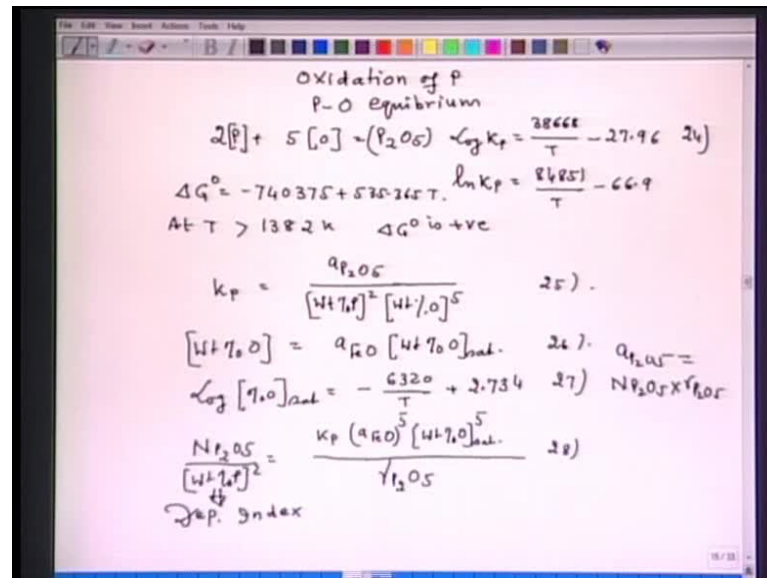 File Edit View Insert Actions Tools Help
Oxidation of P
P-O equibrium
2[P] + 5[O] = (P2O5) Log Kp = 38668/T - 27.96 24)
ΔG° = -740375 + 535.365 T. ln Kp = 84851/T - 66.9
At T > 1382 K ΔG° is +ve
Kp = aP2O5 / [Wt%P]^2 [Wt%O]^5 25).
[Wt%O] = aFeO [Wt%O]sat. 26).
aP2O5 =
Log [%O]sat = - 6320/T + 2.734 27) NP2O5 x γP2O5
NP2O5 / [Wt%P]^2 = Kp (aFeO)^5 [Wt%O]^5 sat. / γP2O5 28)
Dep. Index
15/33